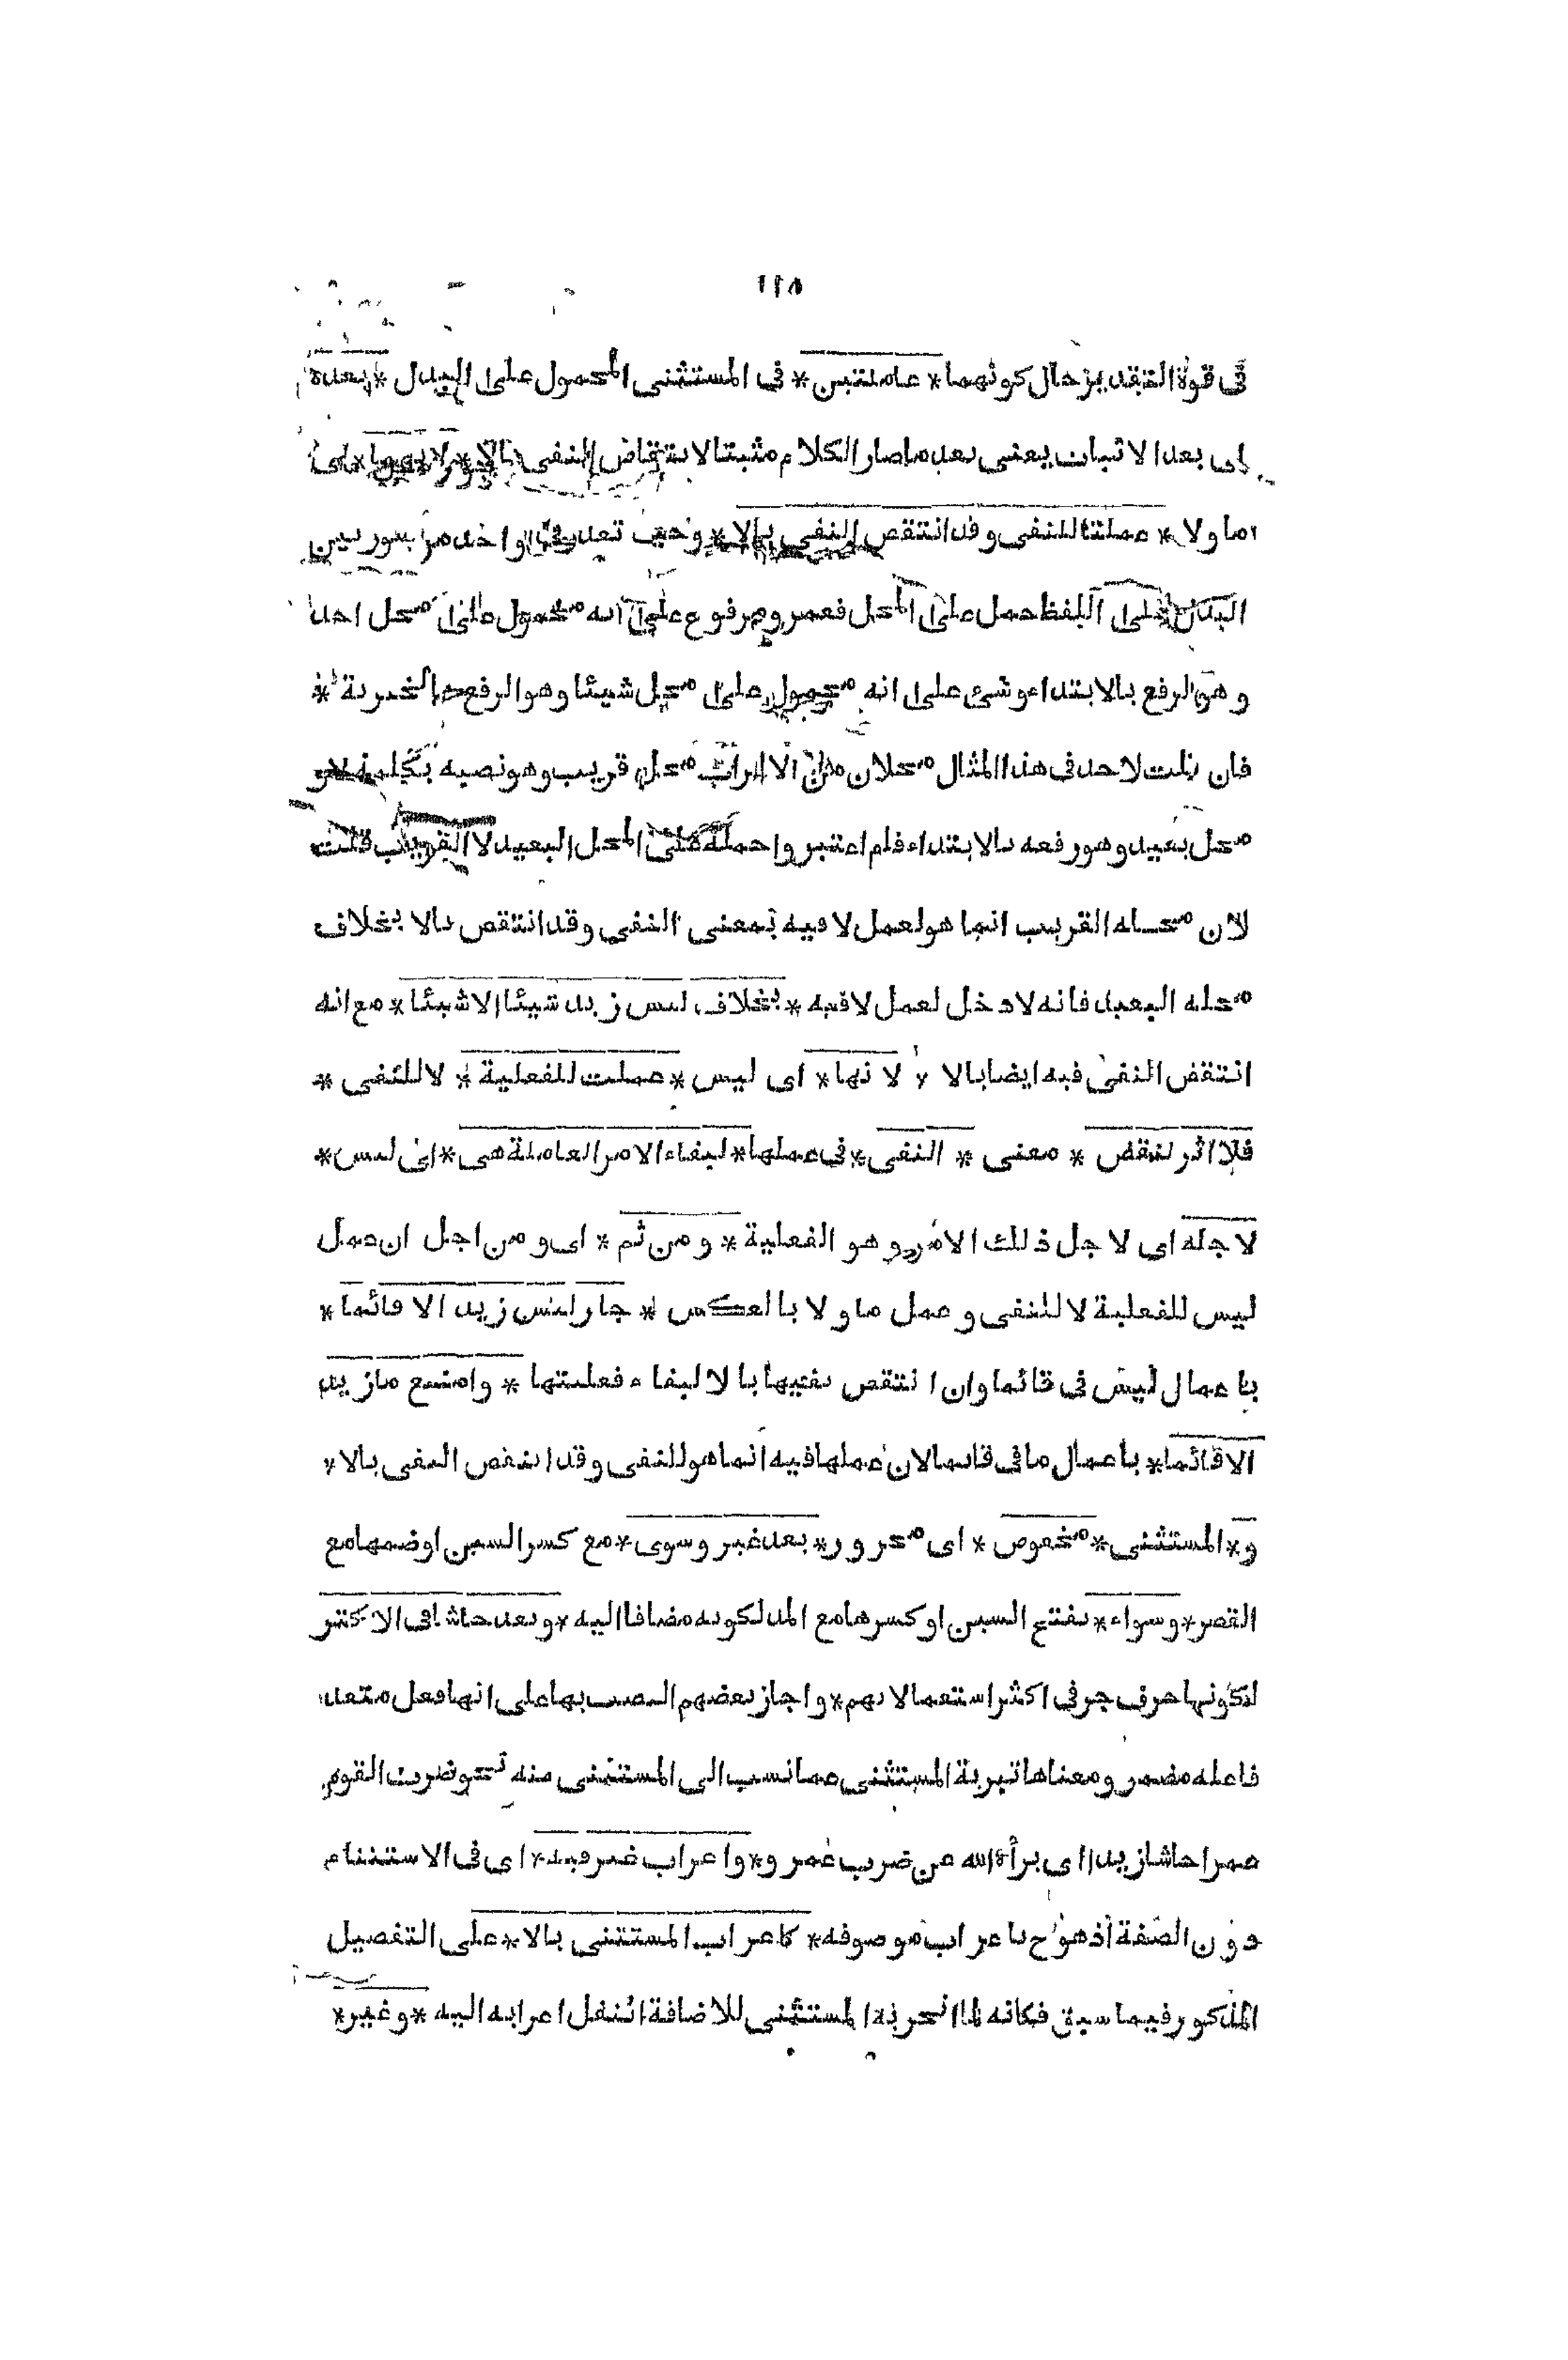 ١١٨
فى قوة التقدير حال كونهما * عاملتين * فى المستثنى المحمول على البدل * بعده
اى بعد الاثبات يعنى بعد ما صار الكلام مثبتا لانتقاض النفى بالا *
ما ولا * عملتا للنفى وقد انتقض النفى بالا * وحيث تعذر
البدل على اللفظ حمل على المحل فعمرو مرفوع على انه محمول على محل احد
وهو الرفع بالابتداء وشئ على انه محمول على محل شيئا وهو الرفع بالخبرية *
فان قلت لاحد فى هذا المثال محلان من الاعراب محل قريب وهو نصبه بكلمة لا و
محل بعيد وهو رفعه بالابتداء فلم اعتبر واحمله على المحل البعيد لا القريب قلت
لان محله القريب انما هو لعمل لا فيه بمعنى النفى وقد انتقض بالا بخلاف
محله البعيد فانه لا دخل لعمل لا فيه * بخلاف ليس زيد شيئا الا شيئا * مع انه
انتقض النفى فيه ايضا بالا * لانها * اى ليس * عملت للفعلية * لا للنفى *
فلا اثر لنقض * معنى * النفى * فى عملها * لبقاء الامر العاملة هى * اى ليس *
لاجله اى لاجل ذلك الامر وهو الفعلية * ومن ثم * اى ومن اجل ان عمل
ليس للفعلية لا للنفى وعمل ما ولا بالعكس * جاز ليس زيد الا قائما *
باعمال ليس فى قائما وان انتقض نفيها بالا لبقاء فعليتها * وامتنع ما زيد
الا قائما * باعمال ما فى قائما لان عملها فيه انما هو للنفى وقد انتقض النفى بالا *
و * المستثنى * مخفوض * اى مجرور * بعد غير وسوى * مع كسر السين او ضمها مع
القصر * وسواء * بفتح السين او كسرها مع المد لكونه مضافا اليه * وبعد حاشا فى الاكثر
لكونها حرف جر فى اكثر استعمالاتهم * واجاز بعضهم النصب بها على انها فعل متعد
فاعله مضمر ومعناها تبرية المستثنى عما نسب الى المستثنى منه نحو ضرب القوم
عمرا حاشا زيدا اى برأه الله عن ضرب عمرو * واعراب غير فيه * اى فى الاستثناء
دون الصفة اذ هو ح باعراب موصوفه * كاعراب المستثنى بالا * على التفصيل
المذكور فيما سبق فكانه لما انجر به المستثنى للاضافة انتقل اعرابه اليه * وغير *